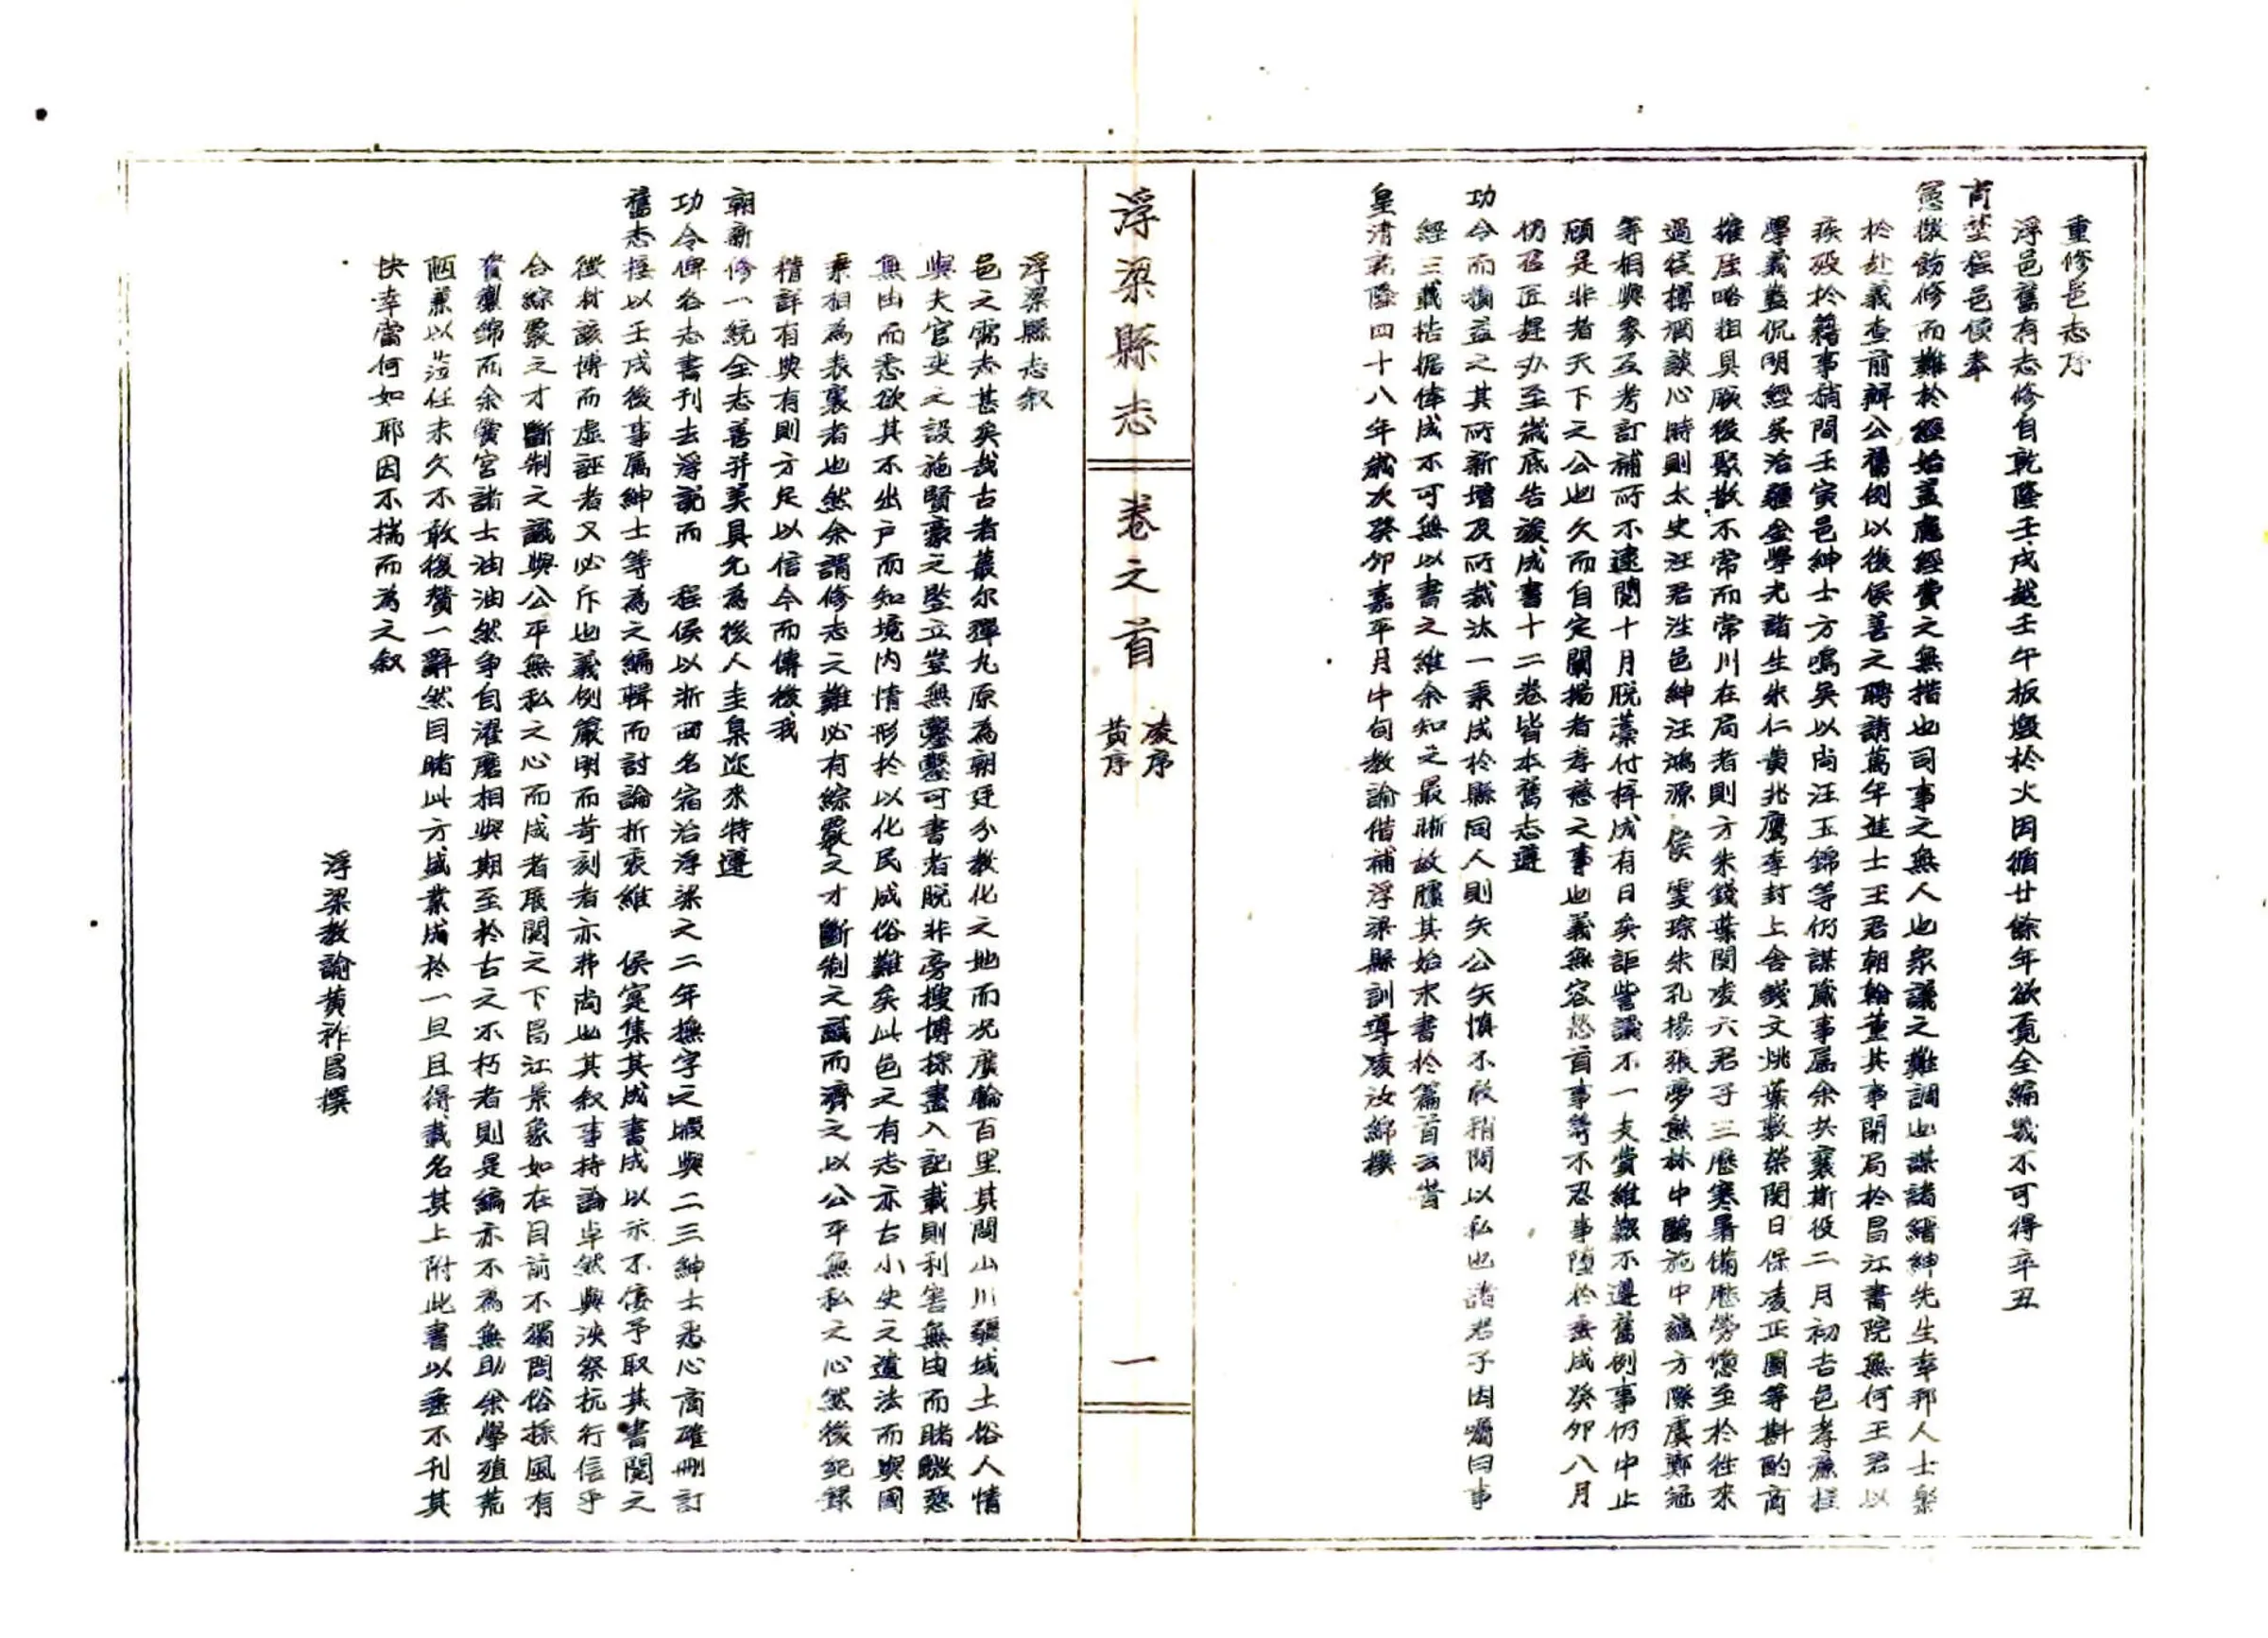 重修邑志序
浮邑舊有志修自乾隆壬戌越壬午板燬於火因循廿餘年欲覓全編幾不可得辛丑
程邑侯奉
憲檄飭修而難於經始蓋應經費之無措也司事之無人也衆議之難調也謀諸縉紳先生幸邦人士樂
於赴義查前辦公舊例以後侯善之聘請萬年進士王君朝翰董其事開局於昌江書院無何王君以
疾歿於籍事稍間壬寅邑紳士方鳴矣以尚汪玉錦等仍謀葳事屬余共襄斯役二月初吉邑孝廉
學義監侃明經吳治疆金學光諸生朱仁黄兆鷹李封上舍錢文姚葉敷榮関日保凌正圖等斟酌商
摧厓略粗具厥後聚散不常而常川在局者則方朱錢葉関凌六君子三歷寒暑備歷勞憊至於往來
過從撙酒談心時則太史汪君泩邑紳汪鴻源侯雯琮朱孔揚張夢熊林中鶚施中瀛方際虞鄭冠
等相與參互考訂補所不逮閱十月脫藁付梓成有日矣詎訾議不一支黨維艱不遵舊例事仍中止
顧是非者天下之公也久而自定闡揚者孝慈之事也義無容愁首事等不忍事墮於垂成癸卯八月
仍召匠趕办至歲底告竣成書十二卷皆本舊志遵
功令而損益之其所新增及所裁汰一秉成於縣同人則矢公矢慎不敢稍間以私也諸君子因囑曰事
經三載拮据倖成不可無以書之維余知之最晰故臚其始末書於篇首云昔
皇清乾隆四十八年歲次癸卯嘉平月中旬教諭借補浮梁縣訓導凌汝綿撰
浮梁縣志
卷之首
凌序
黄序
一
浮梁縣志叙
邑之需志甚矣哉古者蕞尔彈丸原為朝廷分教化之地而况廣輪百里其間山川疆域土俗人情
與夫官吏之設施賢豪之豎立豈無鑿鑿可書者脱非旁搜博採盡入記載則利害無由而睹臧慝
無由而悉欲其不出户而知境内情形於以化民成俗難矣此邑之有志亦古小史之遺法而與國
乘相為表裏者也然余謂修志之難必有綜覈之才斷制之識而濟之以公平無私之心然後紀録
稽詳有典有則方足以信今而傳後我
朝新修一統全志善并美具允為後人圭臬迩來特遵
功令俾各志書刊去浮説而　程侯以浙西名宿治浮梁之二年撫字之暇與二三紳士悉心商確刪訂
舊志接以壬戌後事属紳士等為之編輯而討論折衷維　侯寔集其成書成以示不佞予取其書閲之
徵材該博而虛誣者又必斥也義例嚴明而苛刻者亦弗尚也其叙事持論卓然與決祭抗行信乎
合綜覈之才斷制之識與公平無私之心而成者展閲之下昌江景象如在目前不獨問俗採風有
資製綿而余黌宫諸士油油然争自濯磨相與期至於古之不朽者則是編亦不為無助余學殖荒
陋兼以蒞任未久不敢復贅一辭然目睹此方盛業成於一旦且得載名其上附此書以垂不刊其
快幸當何如耶因不揣而為之叙
浮梁教諭黄祚昌撰